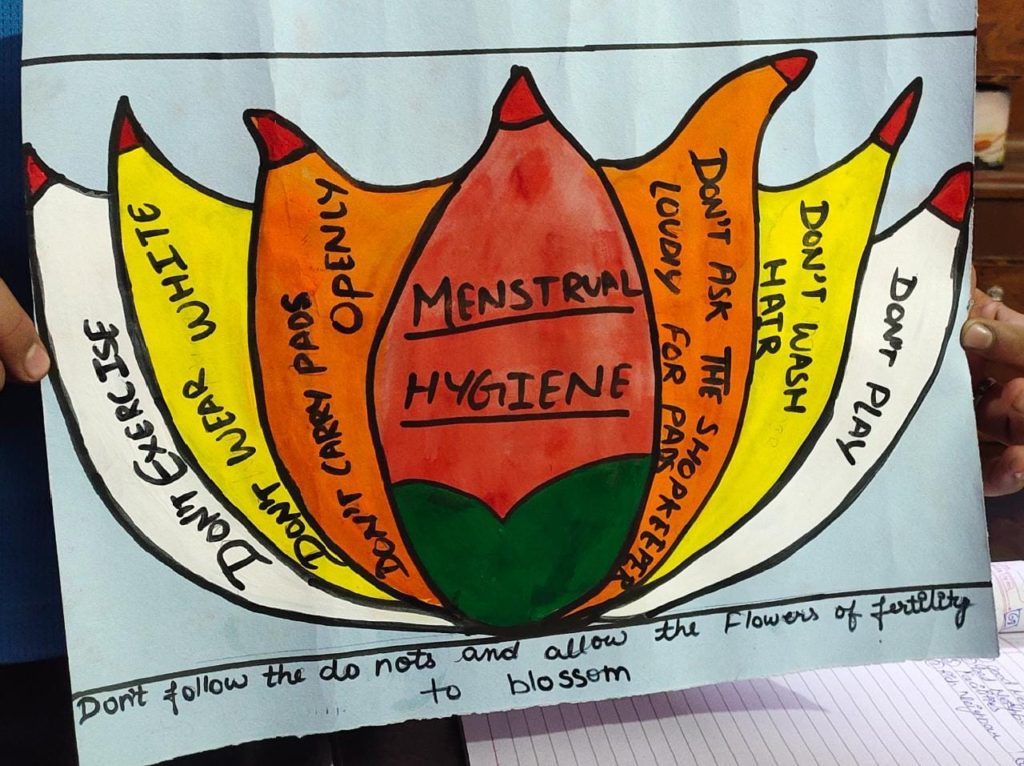 DON'T EXERCISE
DON'T WEAR WHITE
DON'T CARRY PADS
OPENLY
MENSTRUAL
HYGIENE
DON'T ASK THE SHOPKEEPER
LOUDLY FOR PADS
DON'T WASH
HAIR
DONT PLAY
Don't follow the do nots and allow the Flowers of fertility
to blossom